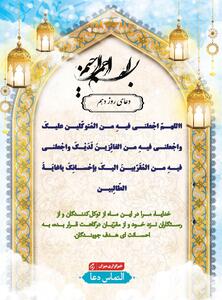 دعای روز دهم
اللهمّ اجْعلنی فیهِ من المُتوکّلین علیکَ
واجْعلنی فیهِ من الفائِزینَ لَدَیْکَ واجْعلنی
فیهِ من المُقَرّبینَ الیکَ بإحْسانِکَ یاغایَةَ
الطّالِبین
خدایا، مرا در این ماه از توکل‌کنندگان و از
رستگاران نزد خود و از مقرّبان درگاهت قرار بده، به
احسانت ای هدف جویندگان.
خبرگزاری میزان
التماس دعا